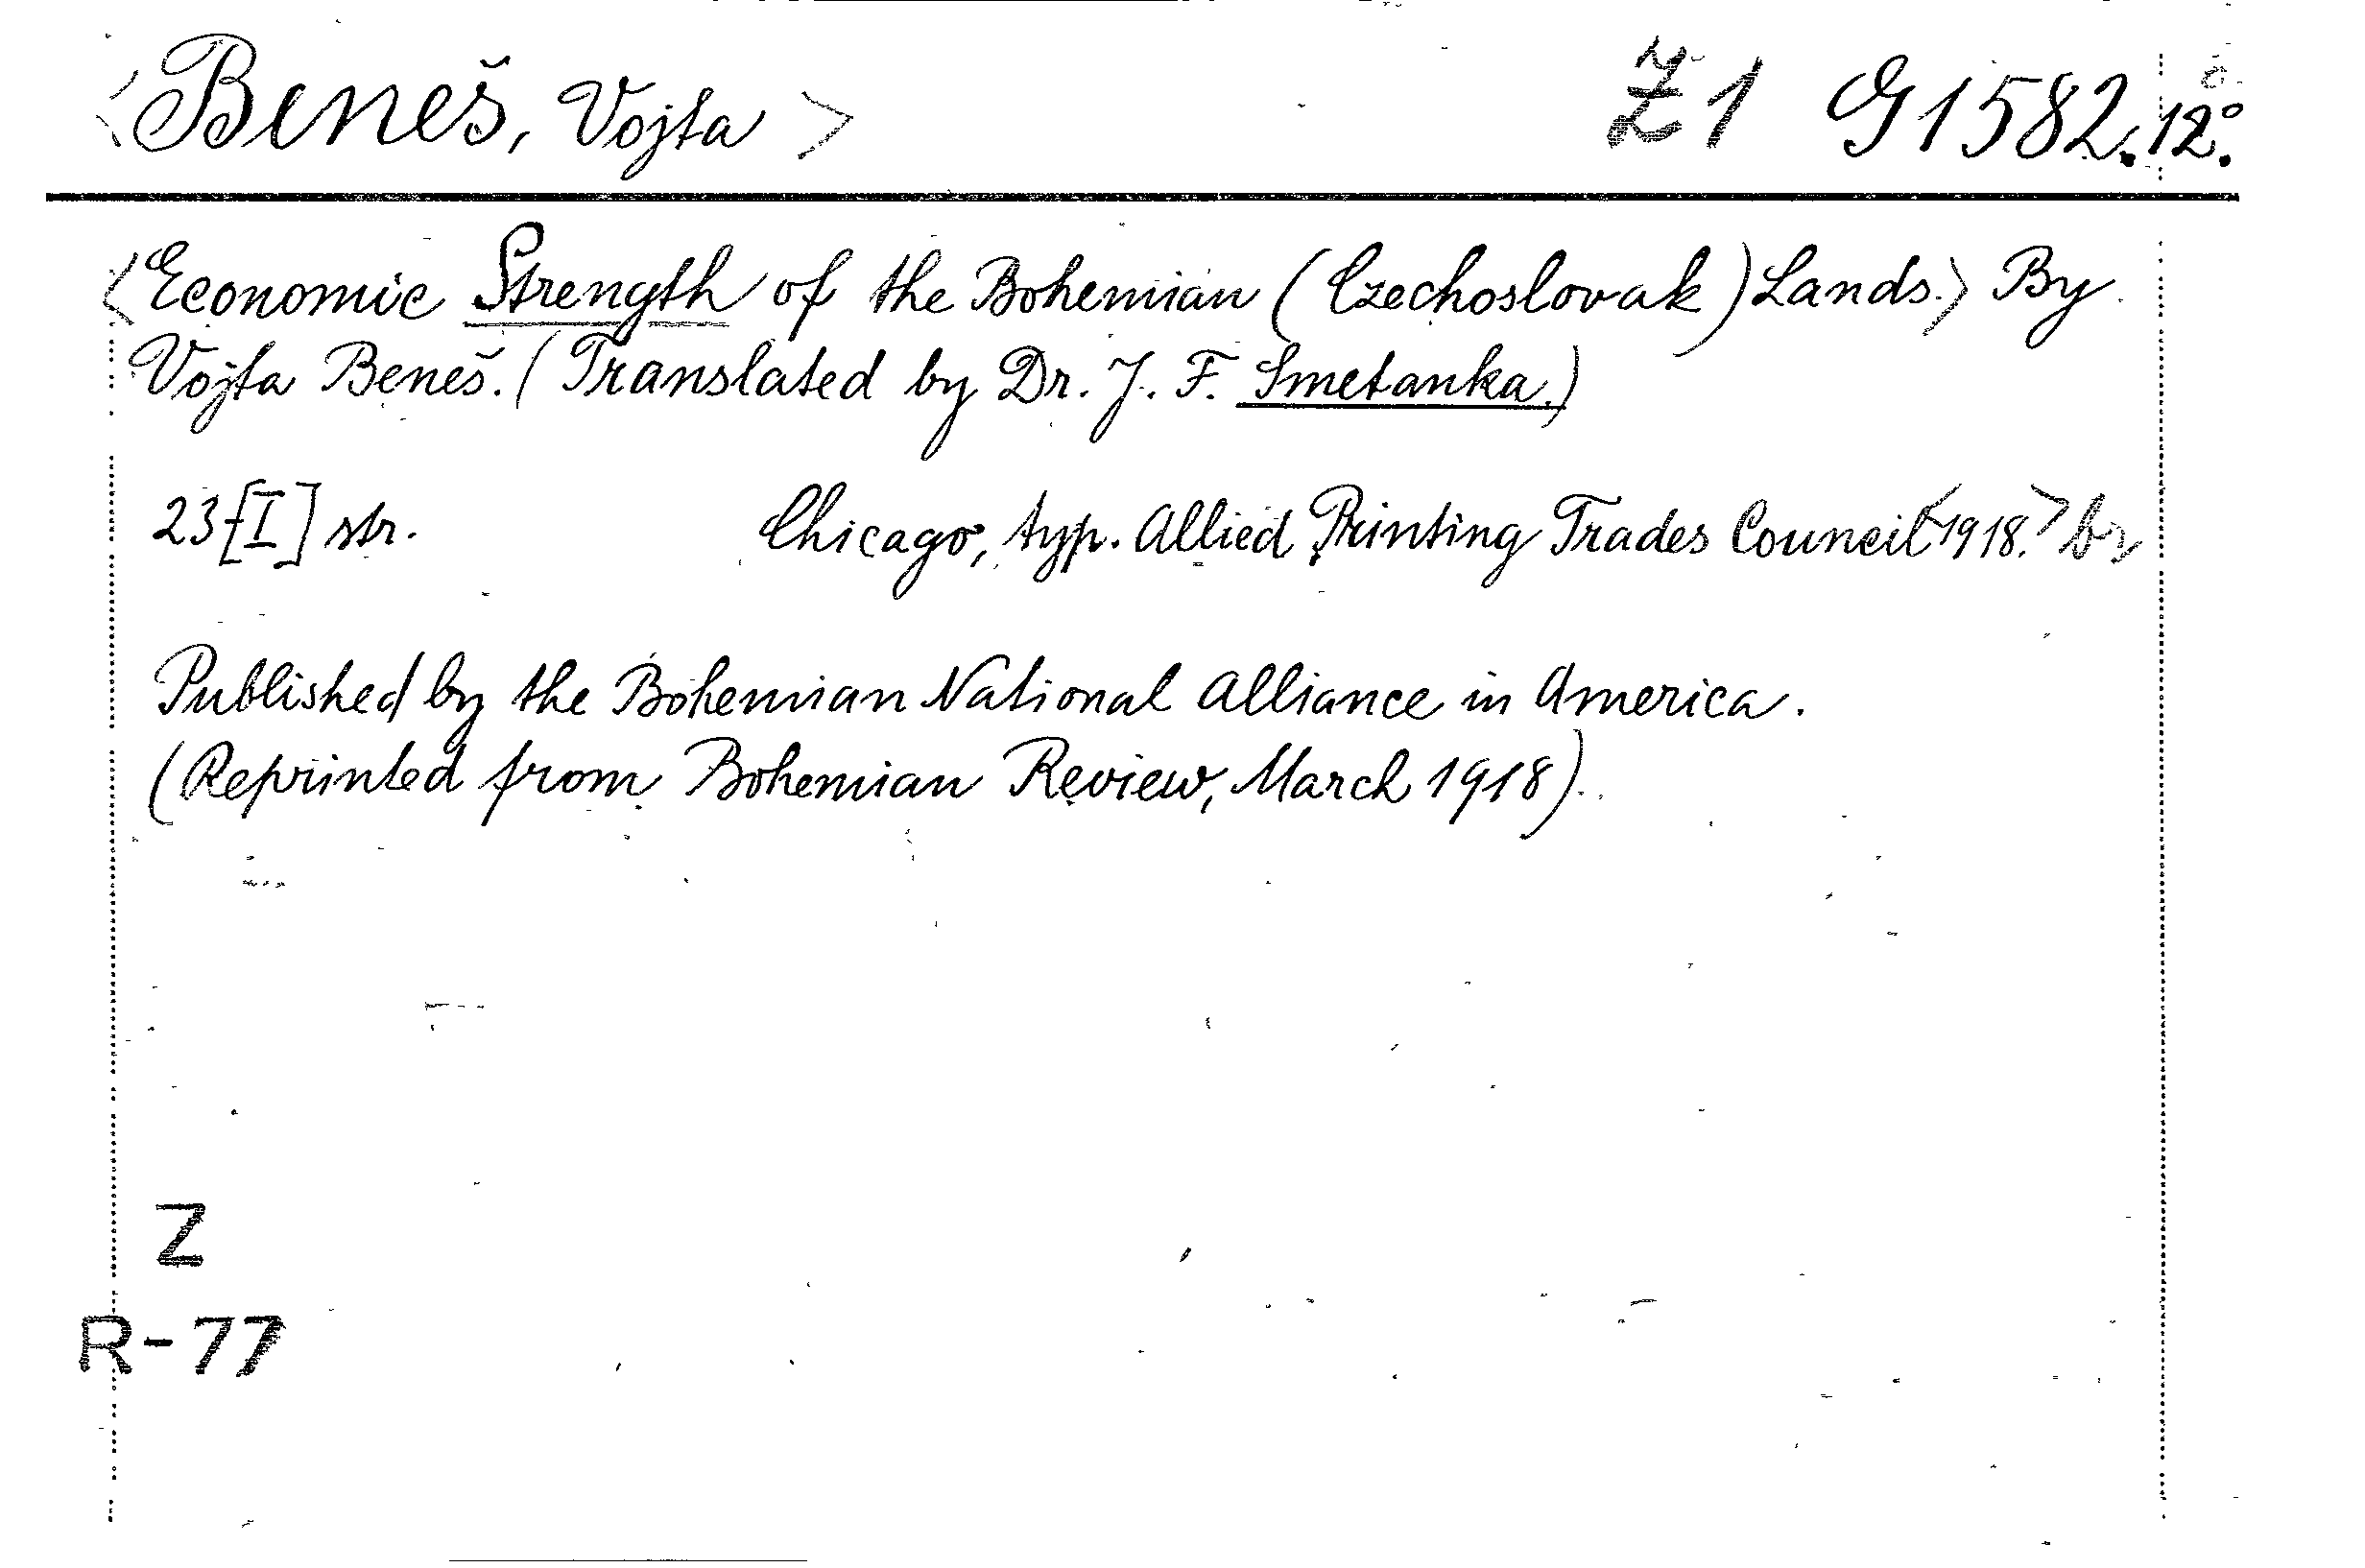 <Beneš, Vojta> Z1 G1582.12°.
<Economic Strength of the Bohemian (Czechoslovak) Lands.> By
Vojta Beneš. (Translated by Dr. J. F. Smetanka.)
23[I] str. Chicago, typ. Allied Printing Trades Council <1918.> br
Published by the Bohemian National Alliance in America.
(Reprinted from Bohemian Review, March 1918).
Z
R-77